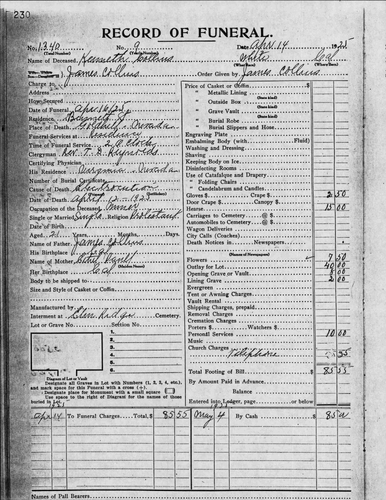 230
RECORD OF FUNERAL.
No. 1340 No. 9 Date Apr. 14 1925
(Total Number) (Yearly Number)
Name of Deceased Kenneth Collins White Cal
(What Race) (Where Born)
James Collins Order Given by James Collins
Charge to
Address
How Secured
Date of Funeral Apr 16/25
Residence
Place of Death
Funeral Services at Residence
Time of Funeral Service 2 P. Clock
Clergyman Rev. T. B. Reynolds
Certifying Physician
His Residence
Number of Burial Certificate
Cause of Death
Date of Death April 13 - 1925
Occupation of the Deceased
Single or Married Single Religion Protestant
Date of Birth
Aged, 21 Years, Months, Days.
Name of Father James Collins
His Birthplace Cal
Name of Mother
(Maiden Name)
Her Birthplace Cal
Body to be shipped to
Size and Style of Casket or Coffin
Manufactured by
Interment at Cemetery.
Lot or Grave No. Section No.
1.
2.
3.
4.
5.
6.
Diagram of Lot or Vault
Designate all Graves in Lot with Numbers (1, 2, 3, 4, etc.), and mark space for this Funeral with a cross (+).
Designate place for Monument with a small square
Use space to the right of Diagram for the names of those buried in Lot.
Price of Casket or Coffin
" Metallic Lining
(State kind)
" Outside Box
(State kind)
" Grave Vault
(State kind)
" Burial Robe
(State kind)
" Burial Slippers and Hose
Engraving Plate
Embalming Body (with Fluid)
Washing and Dressing
Shaving
Keeping Body on Ice
Disinfecting Rooms
Use of Catafalque and Drapery
" Folding Chairs
" Candelabrum and Candles
Gloves $ Crape $ 2 50
Door Crape $ Canopy $
Hearse 15 00
Carriages to Cemetery @ $
Automobiles to Cemetery @ $
Wagon Deliveries
City Calls (Coaches)
Death Notices in Newspapers
Flowers 7 50
Outlay for Lot 40 00
Opening Grave or Vault 8 00
Lining Grave 2 00
Evergreen
Tent or Awning Charges
Vault Rental
Shipping Charges, prepaid
Removal Charges
Cremation Charges
Porters $ Watchers $
Personal Services 10 00
Music
Church Charges
Telephone 55
Total Footing of Bill $ 85 55
By Amount Paid in Advance
Balance
Entered into Ledger, page or below.
Apr. 14 To Funeral Charges Total, $ 85 55 May 4 By Cash $ 85
Names of Pall Bearers